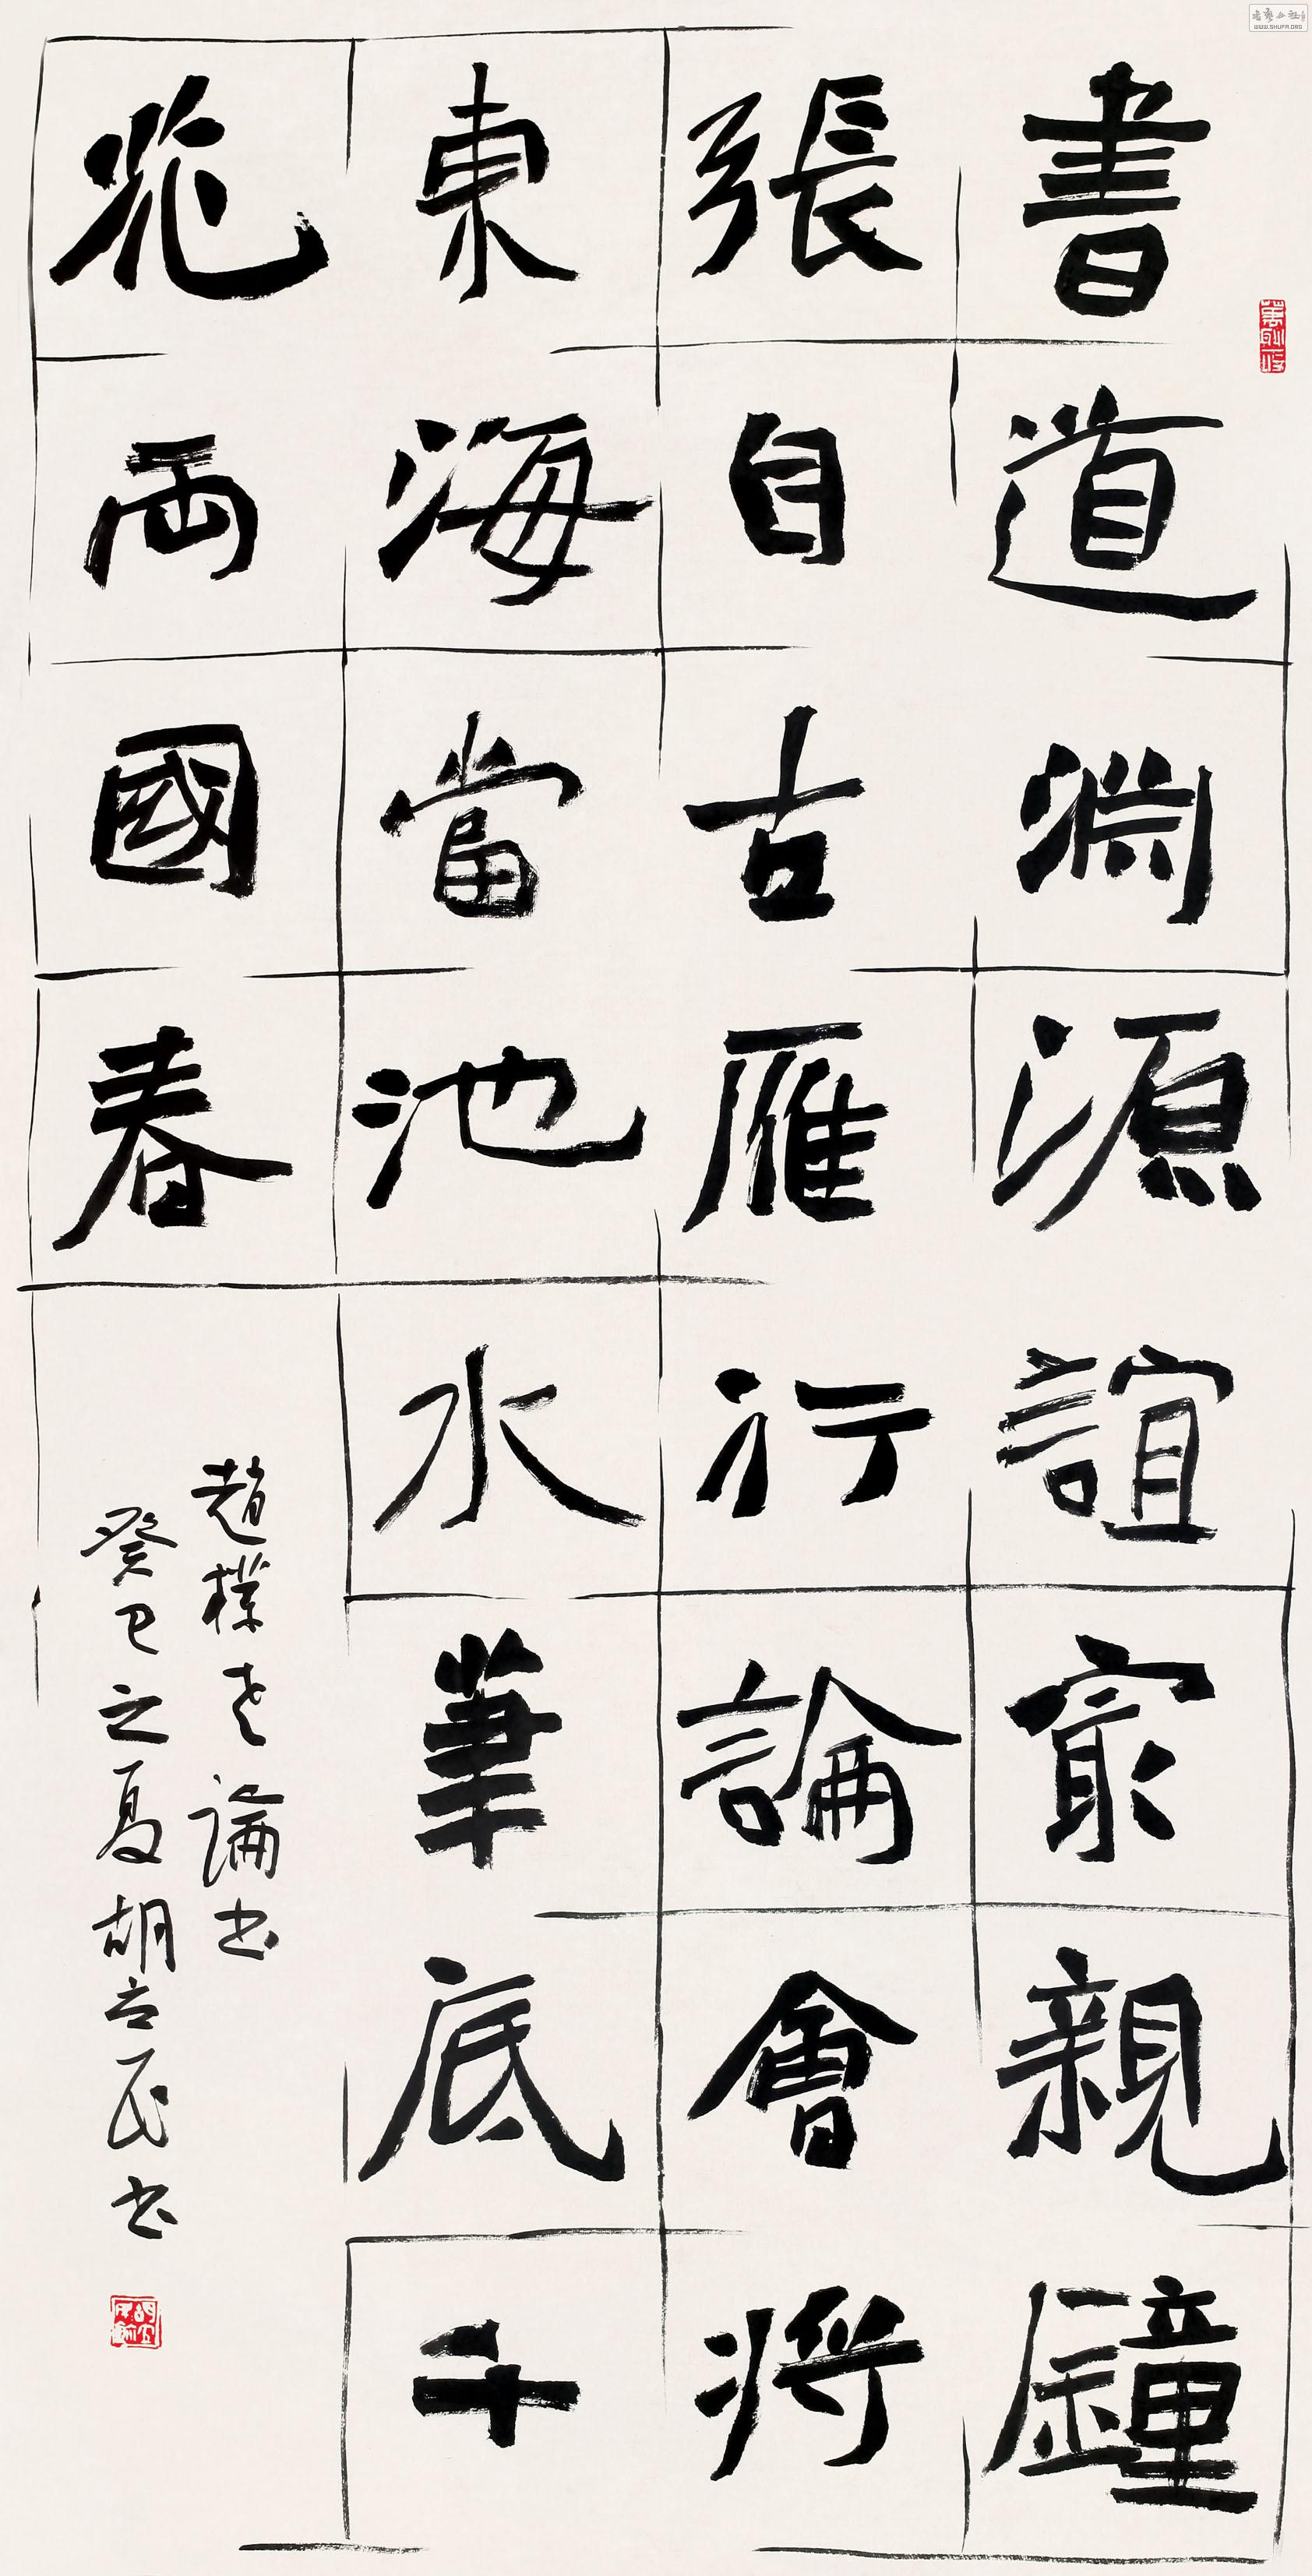 書道淵源誼最親鐘
張自古雁行論會將
東海當池水筆底千
花兩國春
趙樸老論书
癸巳之夏胡立民书
WWW.SHUFA.ORG